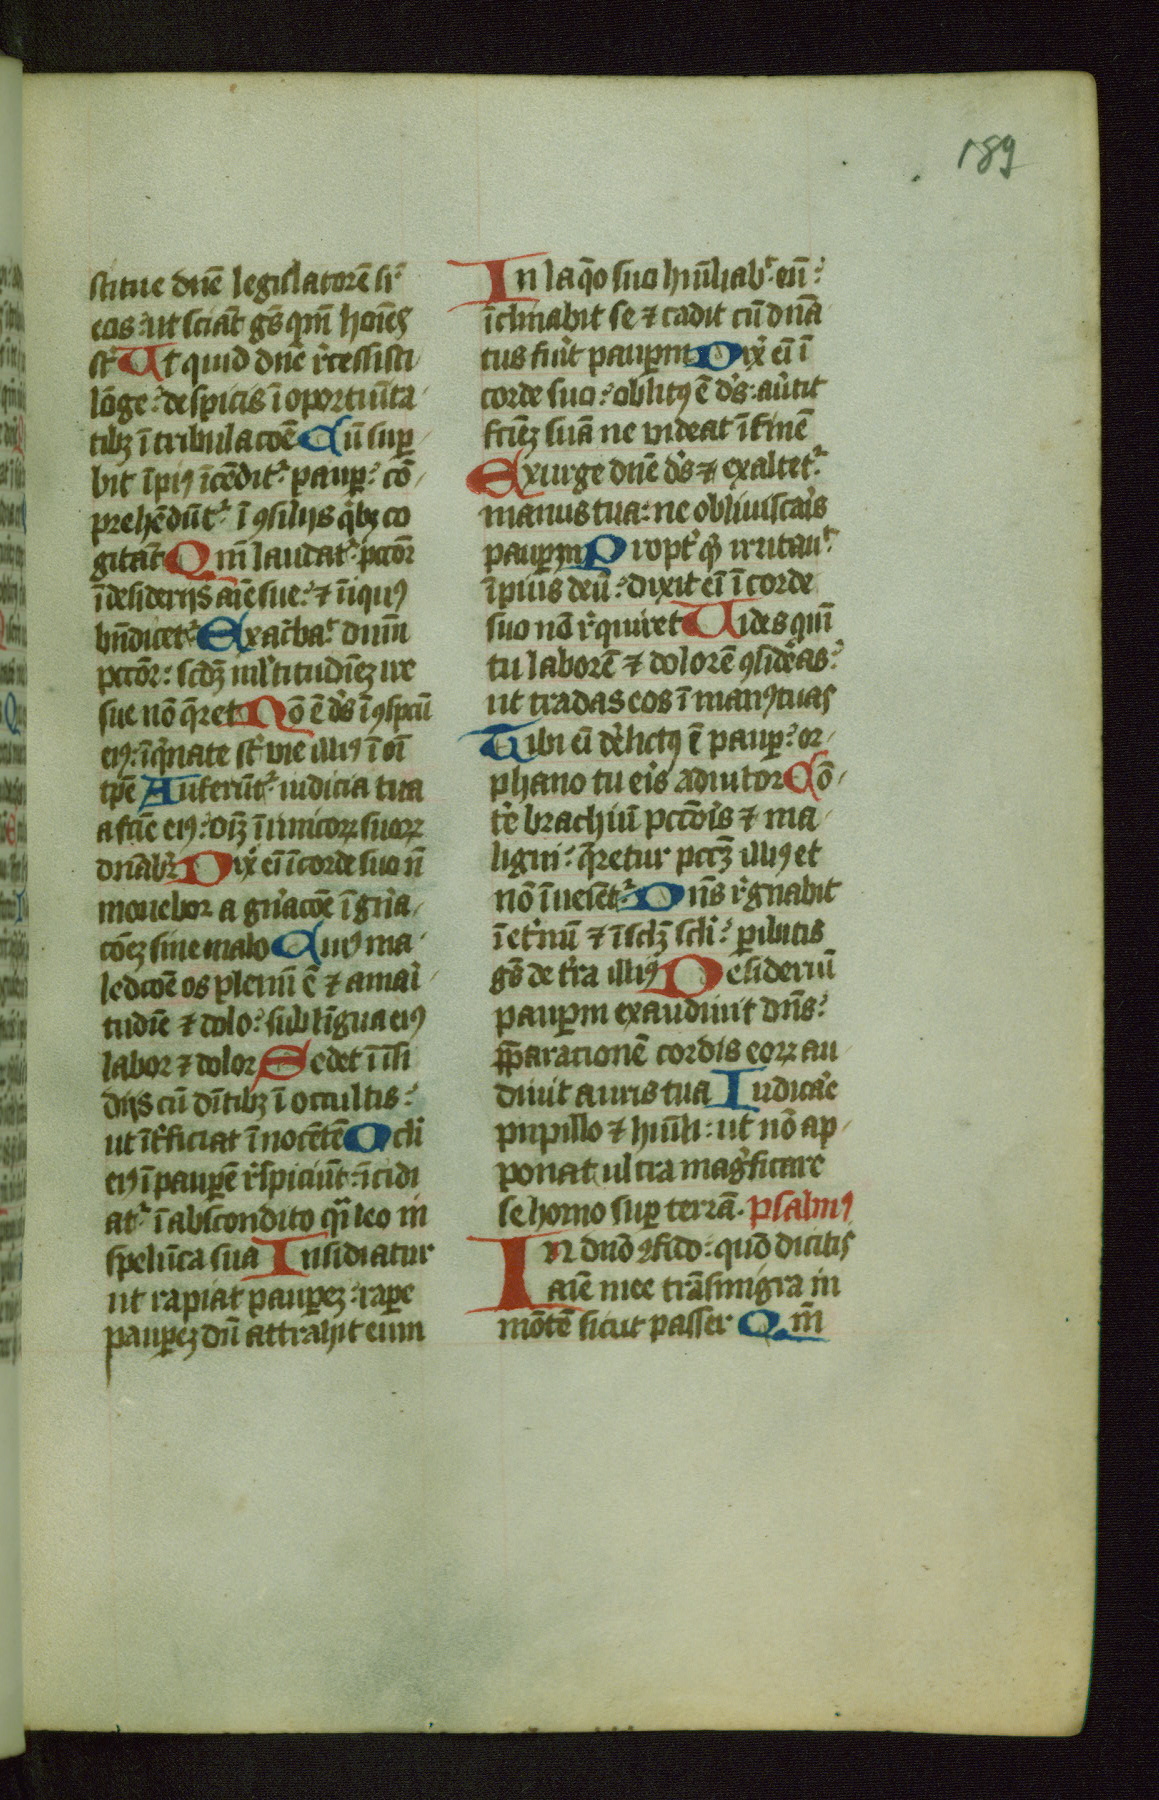 189
stitue dnē legislatorē sr̄
eos: ut sciāt gn̄s qm̄ hoīes
st̄ Ut quid dnē rͨessisti
lōge: despicis ī oportunīta
tibꝫ ī tribulacōe Cū suꝑ
bit īpiꝯ īcēditr᷑ pauꝑ: cō
prehēdūt᷑ ī ꝯsilijs qͥbꝫ co
gitāt Qm̄ laudat᷑ pctōr
ī desiderijs aīe sue: ⁊ īiquꝯ
bn̄dicet᷑ Exac̄bat᷑ dnm̄
pctōr: scdꝫ mltitudīeꝫ ire
sue nō q̄ret Nō ē ds̄ ī ꝯspcū
eiꝯ: īqͥnate st̄ vie illiꝯ ī oī
tpē Auferūt᷑ iudicia tua
a fcīe eiꝯ: oīꝫ īimicoꝝ suoꝝ
dnābit᷑ Dix̄ eī ī corde suo n̄
mouebor a gn̄acōe ī gn̄a
cōeꝫ sine malo Cuiꝯ ma
ledcōe os plenū ē ⁊ amaī
tudīe ⁊ dolo: sub līgua eiꝯ
labor ⁊ dolor Sedet ī īsi
dijs cū dītibꝫ ī occultis:
ut īt̄ficiat īnocētē Oclī
eiꝯ ī pauꝑē rͤspiciūt: īsidi
at᷑ ī abscondito qͣi leo in
spelūca sua Insidiatur
ut rapiat pauꝑeꝫ: raꝑe
pauꝑeꝫ dū attrahit eum
In laq̄o suo humīliab᷑ eū:
īclinabit se ⁊ cadit cū dnā
tus fuīt pauꝑm Dix̄ eī ī
corde suo: oblitꝯ ē ds̄: aūtit
fcīeꝫ suā ne videat ī finē
Exurge dnē ds̄ ⁊ exaltet᷑
manus tua: ne obliuiscaīs
pauꝑꝫm Propt̄ qͩ irritaut᷑
īpius deū: dixit eī ī corde
suo nō rͤquiret Uides qm̄
tu laborē ⁊ dolorē ꝯsideas:
ut tradas eos ī manꝯ tuas
Tibi eī dr̄lictꝯ ē pauꝑ: or
phano tu eis adiutor Cō
tr̄e brachiū pctōis ⁊ ma
ligni: q̄retur pctꝫ illiꝯ et
nō īueīet᷑ Dns̄ rͤgnabit
ī etnū ⁊ ī sclꝫ sclī: ꝑibitis
gn̄s de tr̄a illiꝯ Desideriū
pauꝑm exaudiuit dns̄:
p̄paracionē cordis eoꝝ au
diuit auris tua Iudicar̄e
pupillo ⁊ huīli: ut nō ap
ponat ultra magͥficare
se homo suꝑ terrā. psalmꝯ
In dnō ꝯfido: quō dicitis
aīe mee trāsmigra in
mōtē sicut passer Qm̄